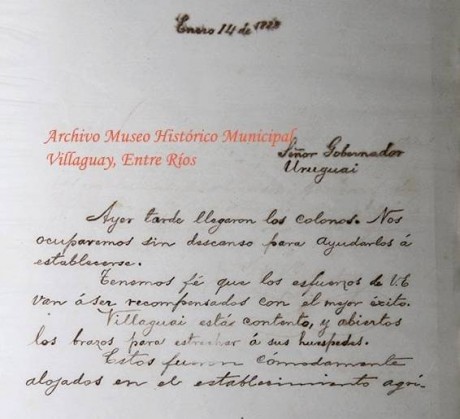 Enero 14 de
Archivo Museo Histórico Municipal
Villaguay, Entre Ríos
Señor Gobernador
Uruguai
Ayer tarde llegaron los colonos. Nos
ocuparemos sin descanso para ayudarlos á
establecerse.
Tenemos fé que los esfuerzos de V.E
van á ser recompensados con el mejor éxito.
Villaguai está contento, y abiertos
los brazos para estrechar á sus huespedes.
Estos fueron cómodamente
alojados en el establecimiento agrí-